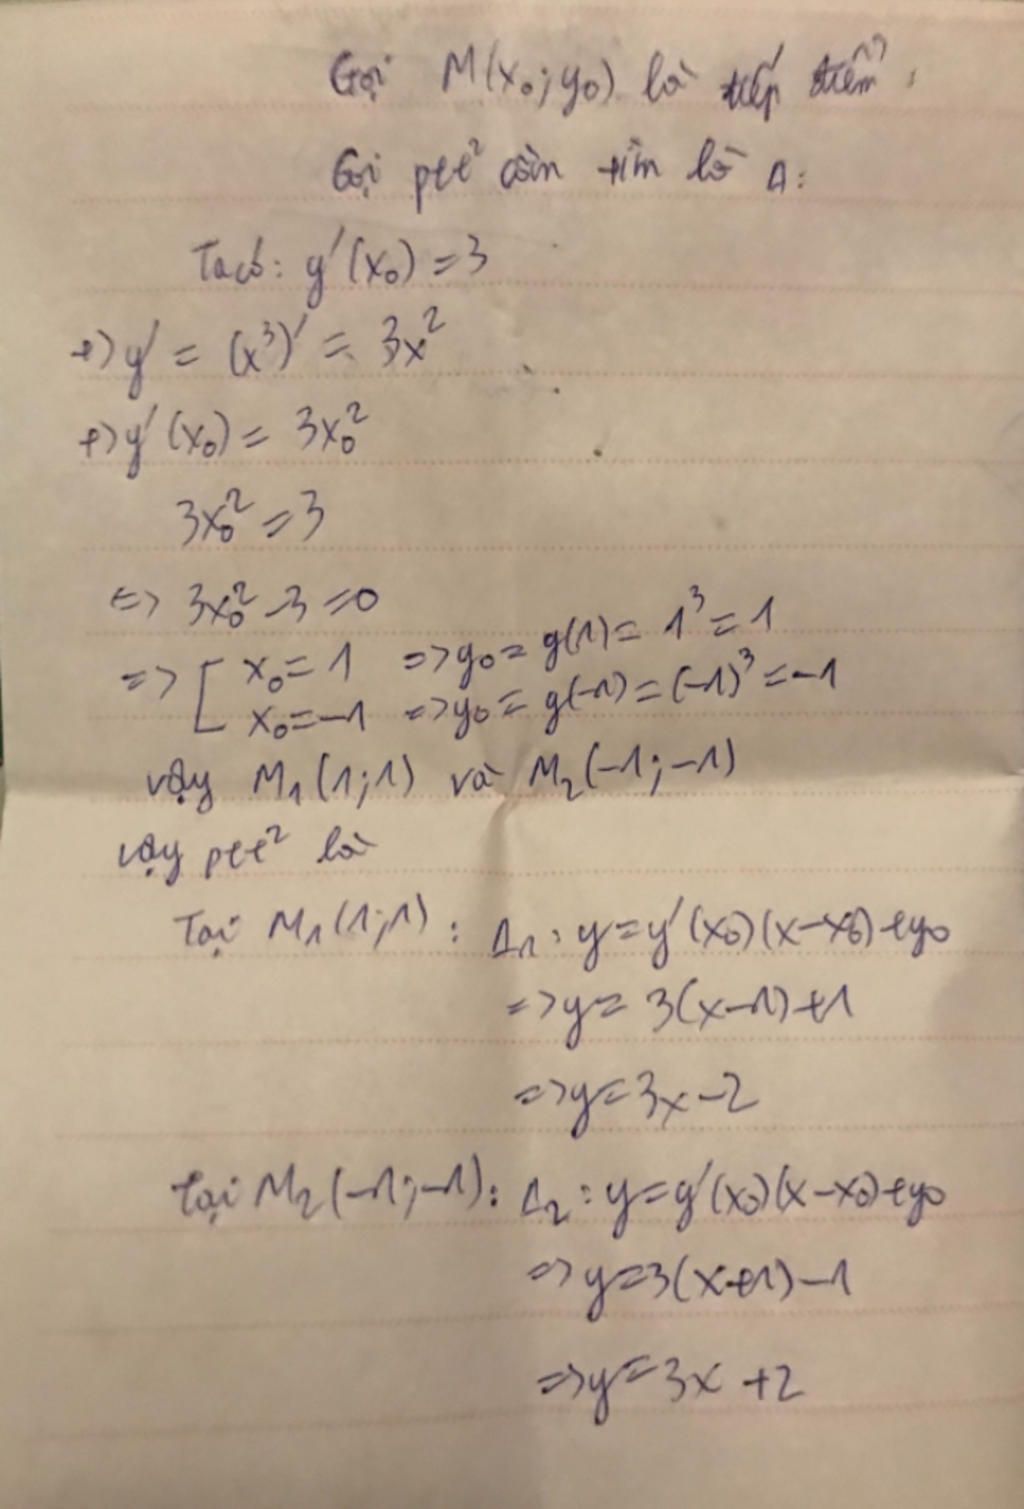 Gọi M(x₀;y₀) là tiếp điểm.
Gọi pttt² cần tìm là Δ:
Ta có: y'(x₀) = 3
+) y' = (x³)' = 3x²
+) y'(x₀) = 3x₀²
3x₀² = 3
<=> 3x₀² - 3 = 0
=> [ x₀ = 1 => y₀ = y(1) = 1³ = 1
x₀ = -1 => y₀ = y(-1) = (-1)³ = -1
vậy M₁(1;1) và M₂(-1;-1)
vậy ptt² là
Tại M₁(1;1): Δ₁: y = y'(x₀)(x-x₀)+y₀
=> y = 3(x-1)+1
=> y = 3x-2
Tại M₂(-1;-1): Δ₂: y = y'(x₀)(x-x₀)+y₀
=> y = 3(x+1)-1
=> y = 3x+2